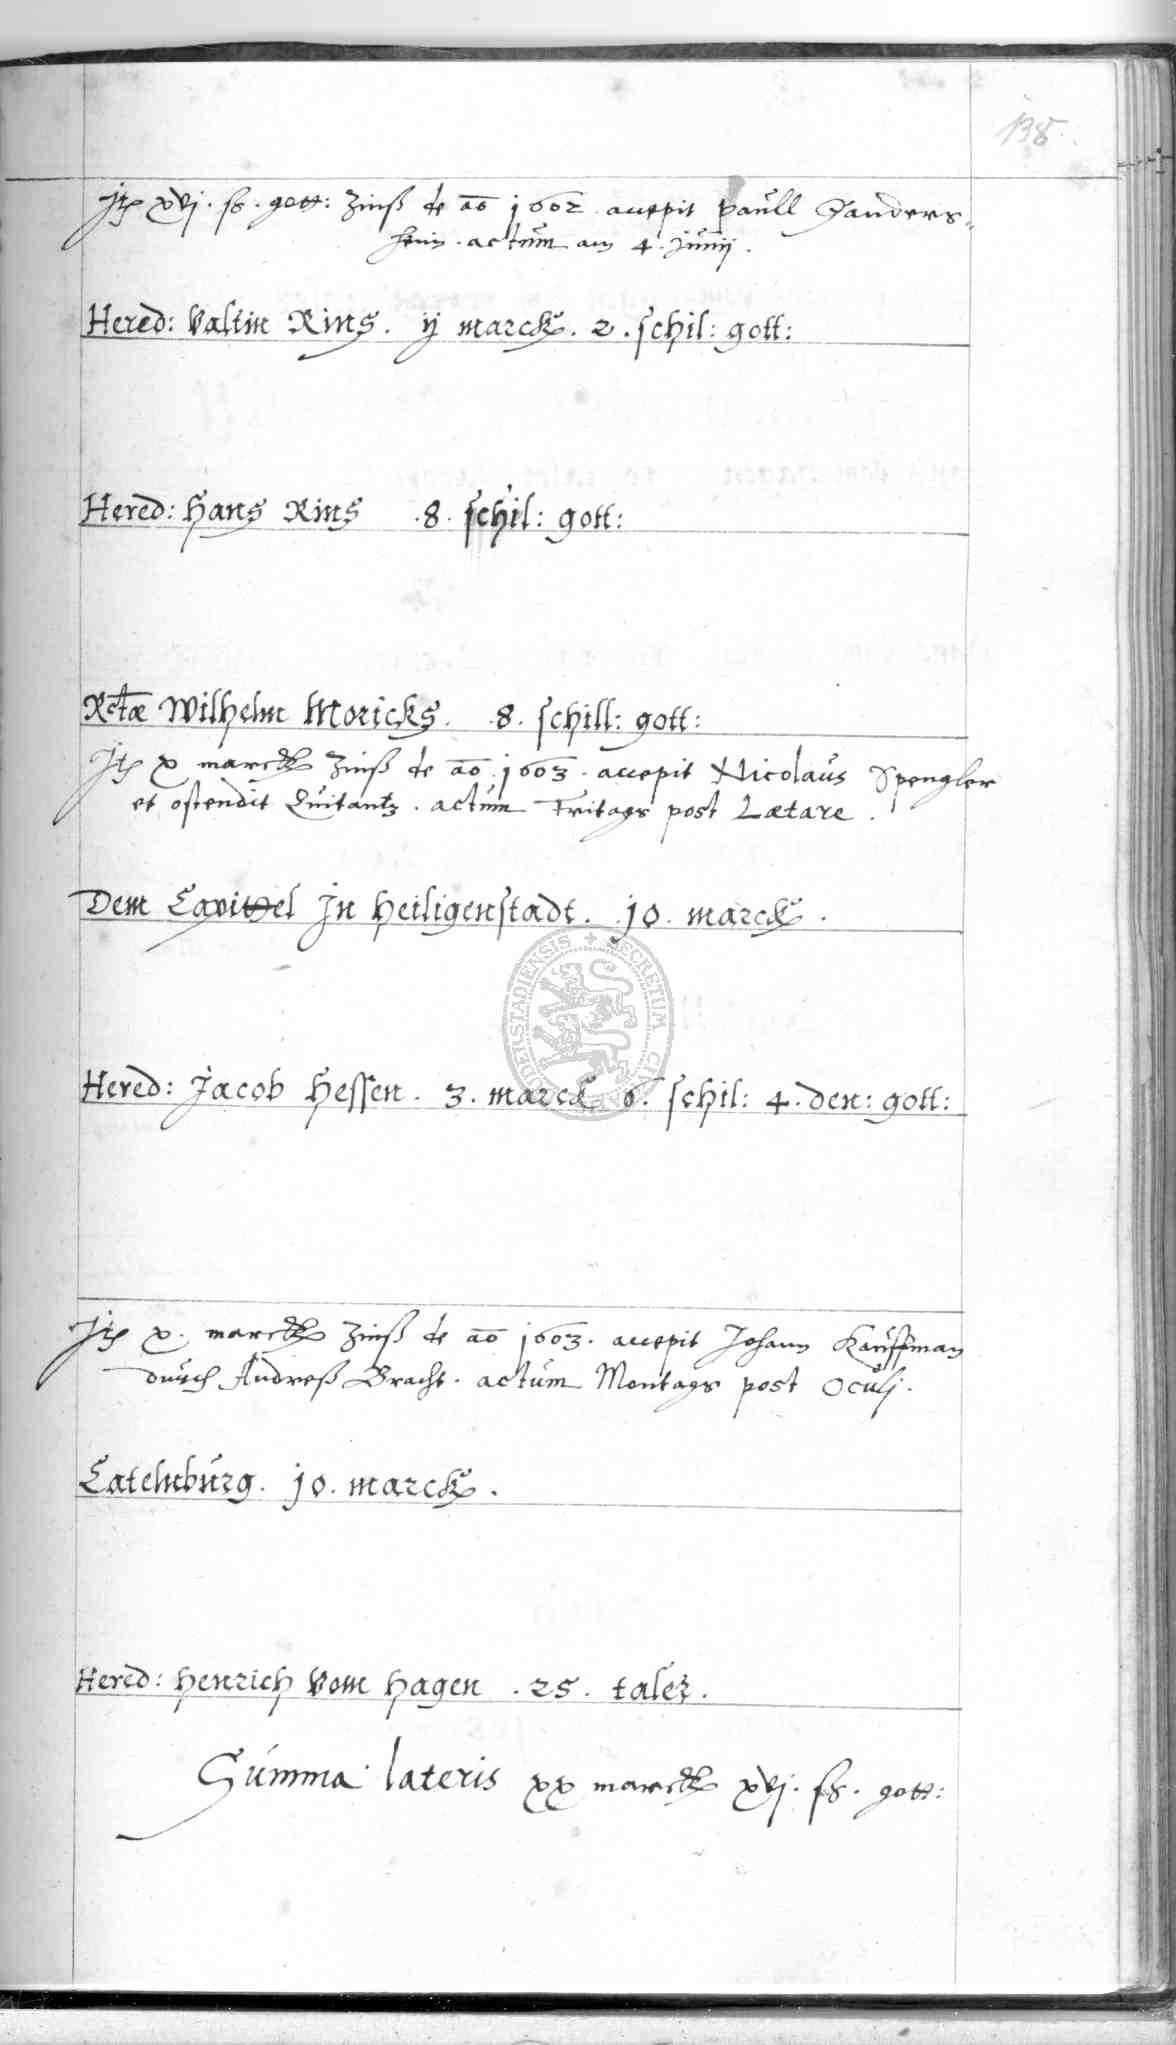 138
Jtē xvj. ß. gott: Zinß de aō 1602. accepit Paull Ganders-
heim. actum am 4. Junij.
Hered: Valtin Rins. ij marck. 2. schil: gott:
Hered: Hans Rins .8. schil: gott:
Rctæ Wilhelm Moricks. .8. schill: gott:
Jtē x marck Zinß de aō 1603. accepit Nicolaus Spengler
et ostendit Quitantz. actum Fritags post Lætare.
Dem Capittel Jn Heiligenstadt. 10. marck.
SECRETUM CI DERSTADIENSIS
Hered: Jacob Hessen. 3. marck 6. schil: 4. den: gott:
Jtē x. marck Zinß de aō 1603. accepit Johann Kauffman
durch Andreß Bracht. actum Montags post Oculj.
Catelnburg. 10. marck.
Hered: Henrich Vom Hagen .25. taler.
Summa lateris xx marck xvj. ß. gott: